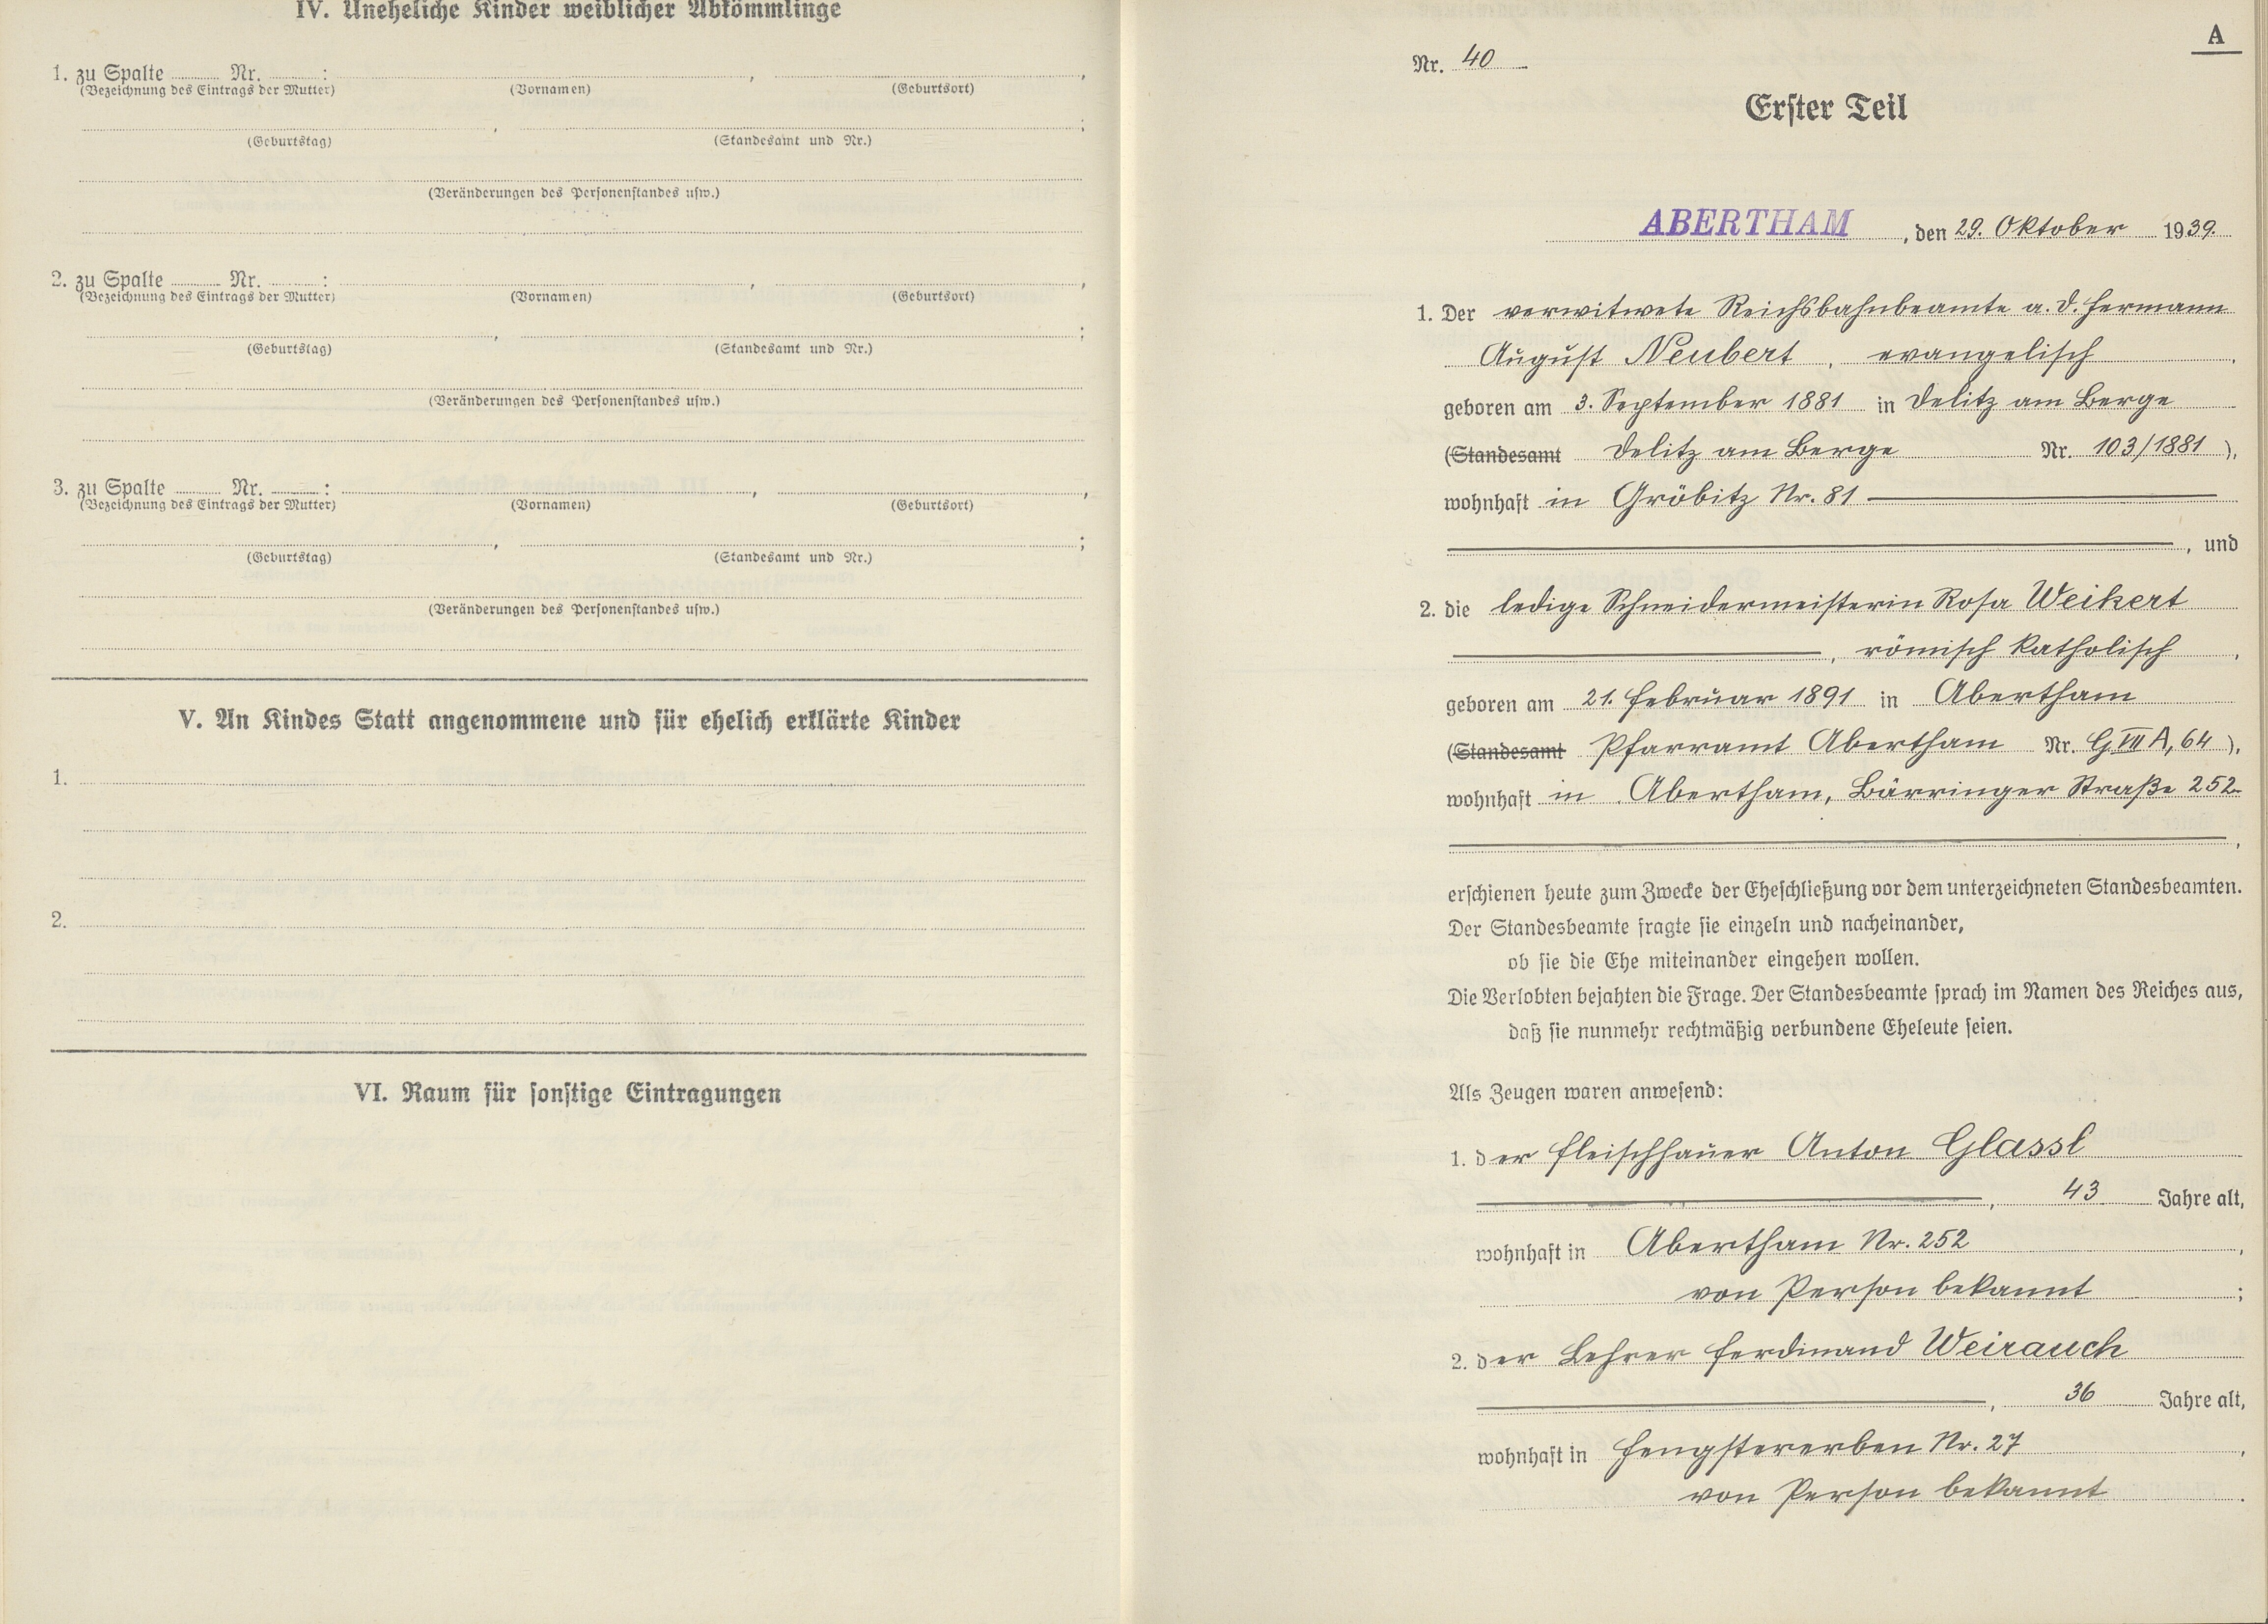 IV. Uneheliche Kinder weiblicher Abkömmlinge
1. zu Spalte ........ Nr. ........ : , ,
(Bezeichnung des Eintrags der Mutter) (Vornamen) (Geburtsort)
, ;
(Geburtstag) (Standesamt und Nr.)
(Veränderungen des Personenstandes usw.)
2. zu Spalte ........ Nr. ........ : , ,
(Bezeichnung des Eintrags der Mutter) (Vornamen) (Geburtsort)
, ;
(Geburtstag) (Standesamt und Nr.)
(Veränderungen des Personenstandes usw.)
3. zu Spalte ........ Nr. ........ : , ,
(Bezeichnung des Eintrags der Mutter) (Vornamen) (Geburtsort)
, ;
(Geburtstag) (Standesamt und Nr.)
(Veränderungen des Personenstandes usw.)
V. An Kindes Statt angenommene und für ehelich erklärte Kinder
1.
2.
VI. Raum für sonstige Eintragungen
A
Nr. 40
Erster Teil
ABERTHAM, den 29. Oktober 1939.
1. Der verwitwete Reichsbahnbeamte a. D. Hermann
August Neubert, evangelisch,
geboren am 3. September 1881 in Delitz am Berge
(Standesamt Delitz am Berge Nr. 103/1881),
wohnhaft in Gröbitz Nr. 81
, und
2. die ledige Schneidermeisterin Rosa Weikert
, römisch katholisch,
geboren am 21. Februar 1891 in Abertham
(Standesamt Pfarramt Abertham Nr. G VIII A, 64),
wohnhaft in Abertham, Bärringer Straße 252
,
erschienen heute zum Zwecke der Eheschließung vor dem unterzeichneten Standesbeamten.
Der Standesbeamte fragte sie einzeln und nacheinander,
ob sie die Ehe miteinander eingehen wollen.
Die Verlobten bejahten die Frage. Der Standesbeamte sprach im Namen des Reiches aus,
daß sie nunmehr rechtmäßig verbundene Eheleute seien.
Als Zeugen waren anwesend:
1. der Fleischhauer Anton Glassl
, 43 Jahre alt,
wohnhaft in Abertham Nr. 252,
von Person bekannt;
2. der Lehrer Ferdinand Weirauch
, 36 Jahre alt,
wohnhaft in Hengstererben Nr. 27,
von Person bekannt.